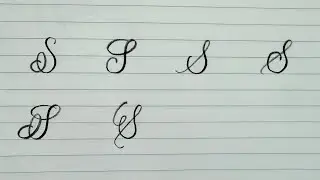 S S S S
S S